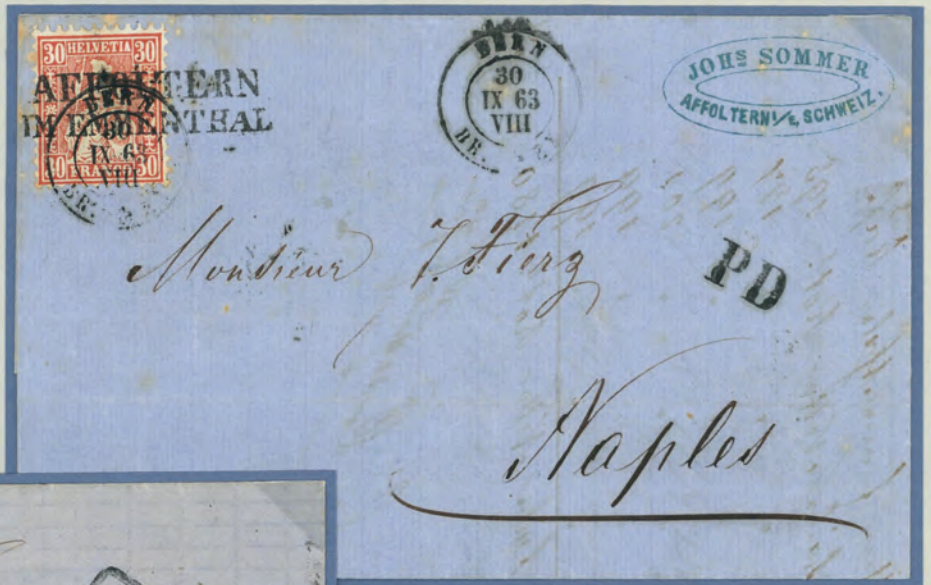 30 HELVETIA 30
AFFOLTERN
IM EMMENTHAL
BERN
30
IX 63
VIII
BE.
FRANCO 30
BERN
30
IX 63
VIII
BE.
JOHS SOMMER
AFFOLTERN I/E, SCHWEIZ.
Monsieur J. Fierz
PD
Naples